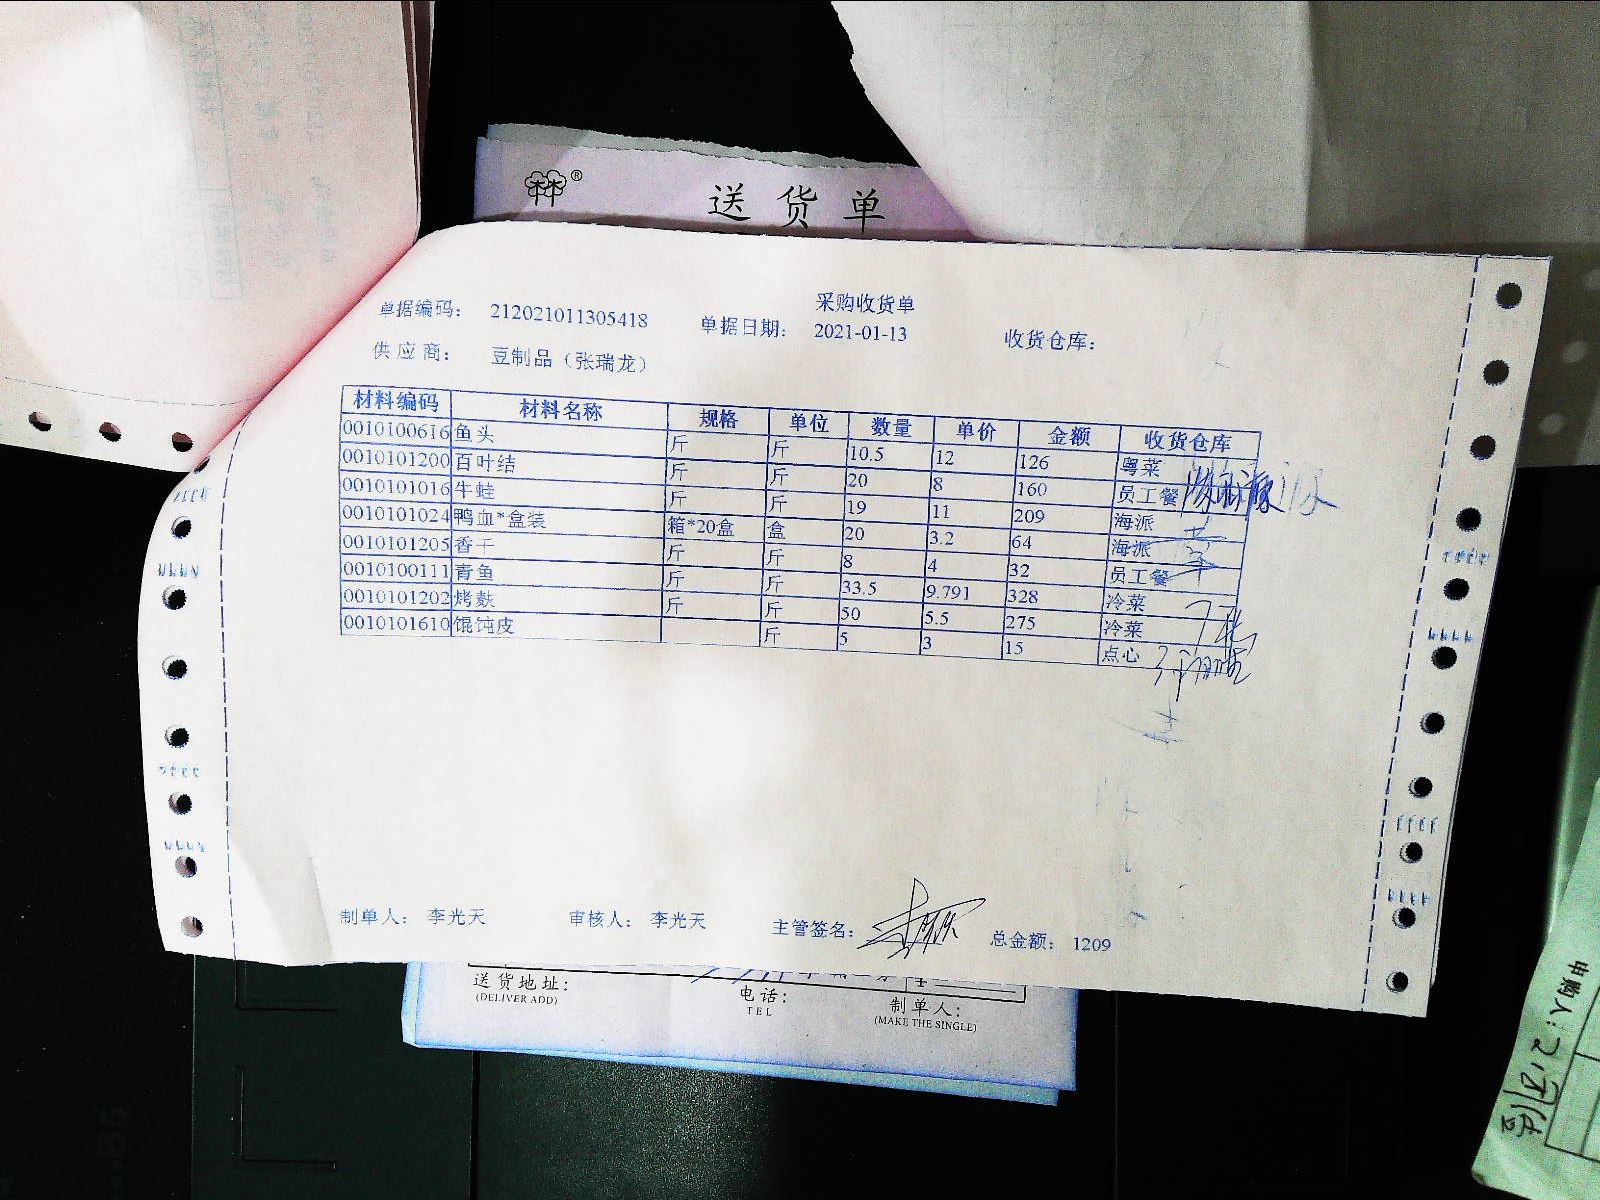 送货单
采购收货单
单据编码： 212021011305418 单据日期： 2021-01-13 收货仓库：
供应商： 豆制品（张瑞龙）
材料编码 材料名称 规格 单位 数量 单价 金额 收货仓库
0010100616 鱼头 斤 斤 10.5 12 126 粤菜
0010101200 百叶结 斤 斤 20 8 160 员工餐
0010101016 牛蛙 斤 斤 19 11 209 海派
0010101024 鸭血*盒装 箱*20盒 盒 20 3.2 64 海派
0010101205 香干 斤 斤 8 4 32 员工餐
0010100111 青鱼 斤 斤 33.5 9.791 328 冷菜
0010101202 烤麸 斤 斤 50 5.5 275 冷菜
0010101610 馄饨皮 斤 5 3 15 点心
制单人： 李光天 审核人： 李光天 主管签名： 总金额： 1209
送货地址： 电话： 制单人：
(DELIVER ADD) TEL (MAKE THE SINGLE)
申购人：